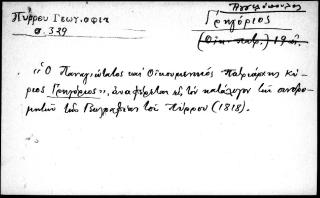 Πύρρου Γεωγραφία
σ. 339
Γρηγόριος
(Οἰκ. πατρ.) 19ος
"Ὁ Παναγιώτατος καὶ Οἰκουμενικὸς Πατριάρχης Κύ-
ριος Γρηγόριος", ἀναφέρεται εἰς τὸν κατάλογον τῶν συνδρο-
μητῶν τῆς Γεωγραφίας τοῦ Πύρρου (1818).